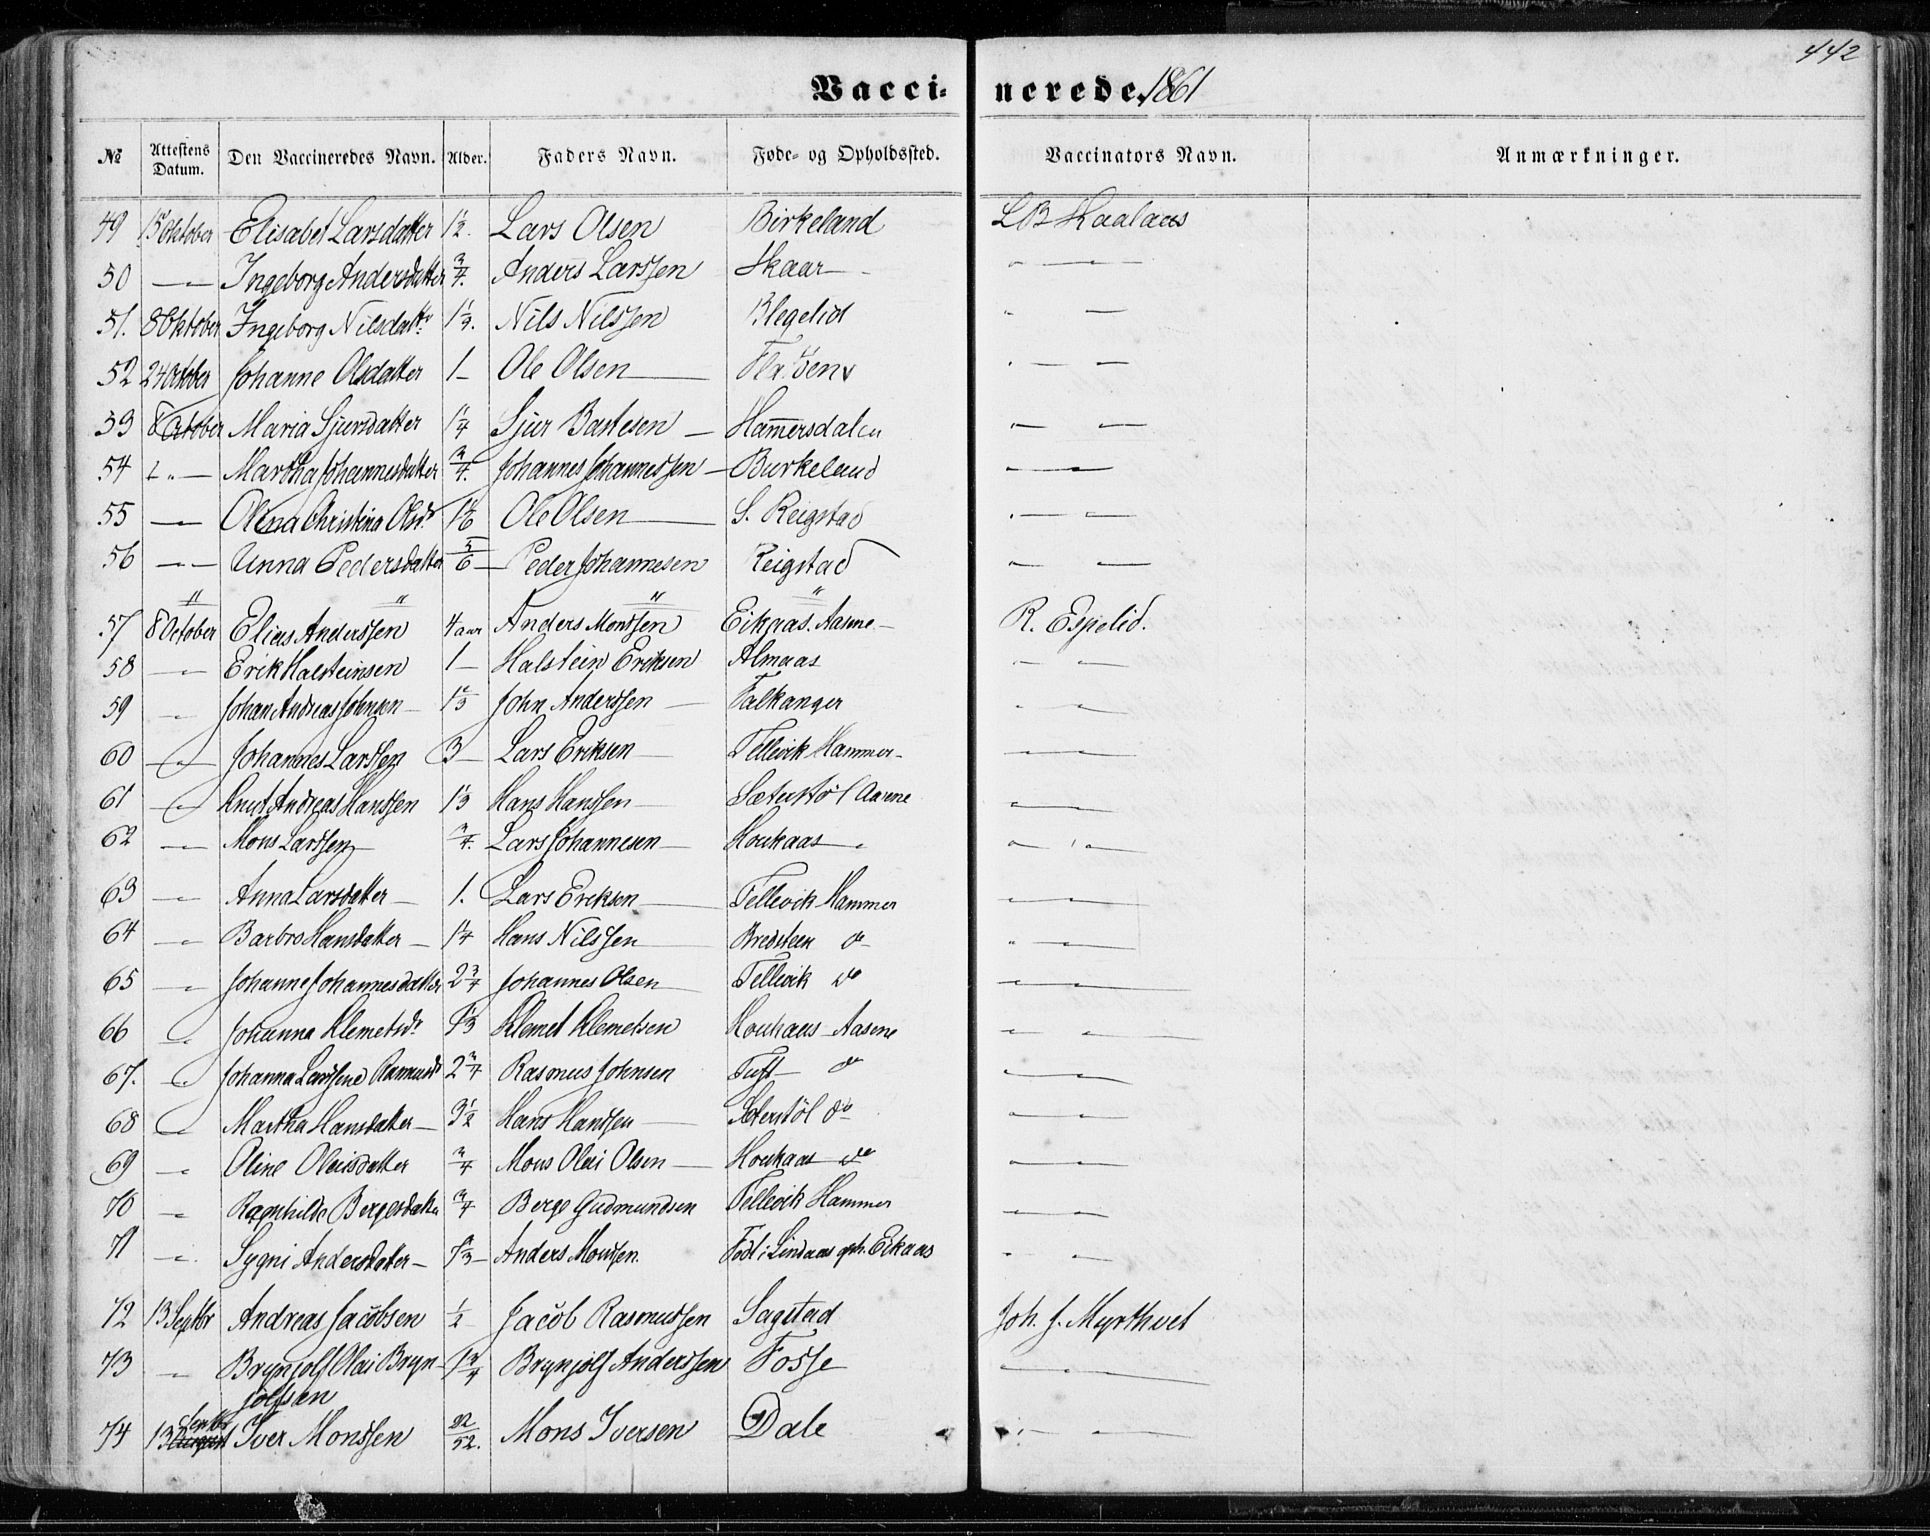 442
Vaccinerede. 1861
№ Attestens Datum. Den Vaccineredes Navn. Alder. Faders Navn. Føde- og Opholdssted. Vaccinators Navn. Anmærkninger.
49 Oktober Elisabet Larsdatter 1½. Lars Olsen Birkeland
50 — Ingeborg Andersdatter ¾. Anders Larssen Skaar — " — —
51. 8 Oktober Ingeborg Nilsdatr 1⅓. Nils Nilssen " —
52 24 October Johanne Olsdatter 1 — Ole Olsen — " — —
53 8 October Maria Sjursdatter 1¼ Sjur Bastesen — Ham̄ersdalen " — —
54 " — Martha Johannesdatter ¾. Johannes Johannessen — Burkeland " — —
55 — Olena Christina Olsdr 1⅙ Ole Olsen — S. Reigstad " — —
56 — Anna Pedersdatter 5/6 — Peder Johannesen Reigstad " — —
" " " "
57 8 October Elias Anderssen 4 aar Anders Monssen Eikaas. Aasene — R. Espelid.
58 — Erik Halsteinsen 1 — Halstein Eriksen Almaas — —
59 — Johan Andreas Johnsen — John Anderssen — Falkanger " —
60 — Johannes Larssen 3 — Lars Eriksen — Tellevik Hammer — — —
61 — Knut Andreas Hanssen 1⅓ Hans Hanssen — Sæterstöl Aasene — —
62 — Mons Larssen — ¾. Lars Johannesen — Houkaas " — —
63 — Anna Larsdatter — 1. Lars Ereksen — Tellevik Hammer — —
64 — Barbro Hansdatter — 1¼ Hans Nilssen — Bredsteen do " —
65 — Johanne Johannesdatter 2¾ Johannes Olsen — Tellevik do — —
66 — Johanna Klemetsdr 1⅓ Klemet Klemetsen Houkaas Aasene — —
67. — Johanna 2¾ Rasmus Johnsen Tuft — do — —
68 — Martha Hansdatter — 3½ Hans Hanssen — Sæterstöl do — —
69 — Oline Olaisdatter ¾ Mons Olai Olsen — Houkaas do — —
70 — Ragnhilde Bergesdatter ¾ Berge Gudmundsen Tellevik Hammer — —
71 — Sygni Andersdatter — 1⅓ — Anders Monssen. Født i Lindaas oph. Eikaas " —
72 13 Septbr Andreas Jacobsen ½ Jacob Rasmussen Sagstad Joh. J. Myrthvet
73 — Brynjolf Olai Bryn- 1¾ Brynjolf Anderssen Fosse — —
jolfsen
Septbr
74 13 August Iver Monssen 22/52. Mons Iversen Dale " — —